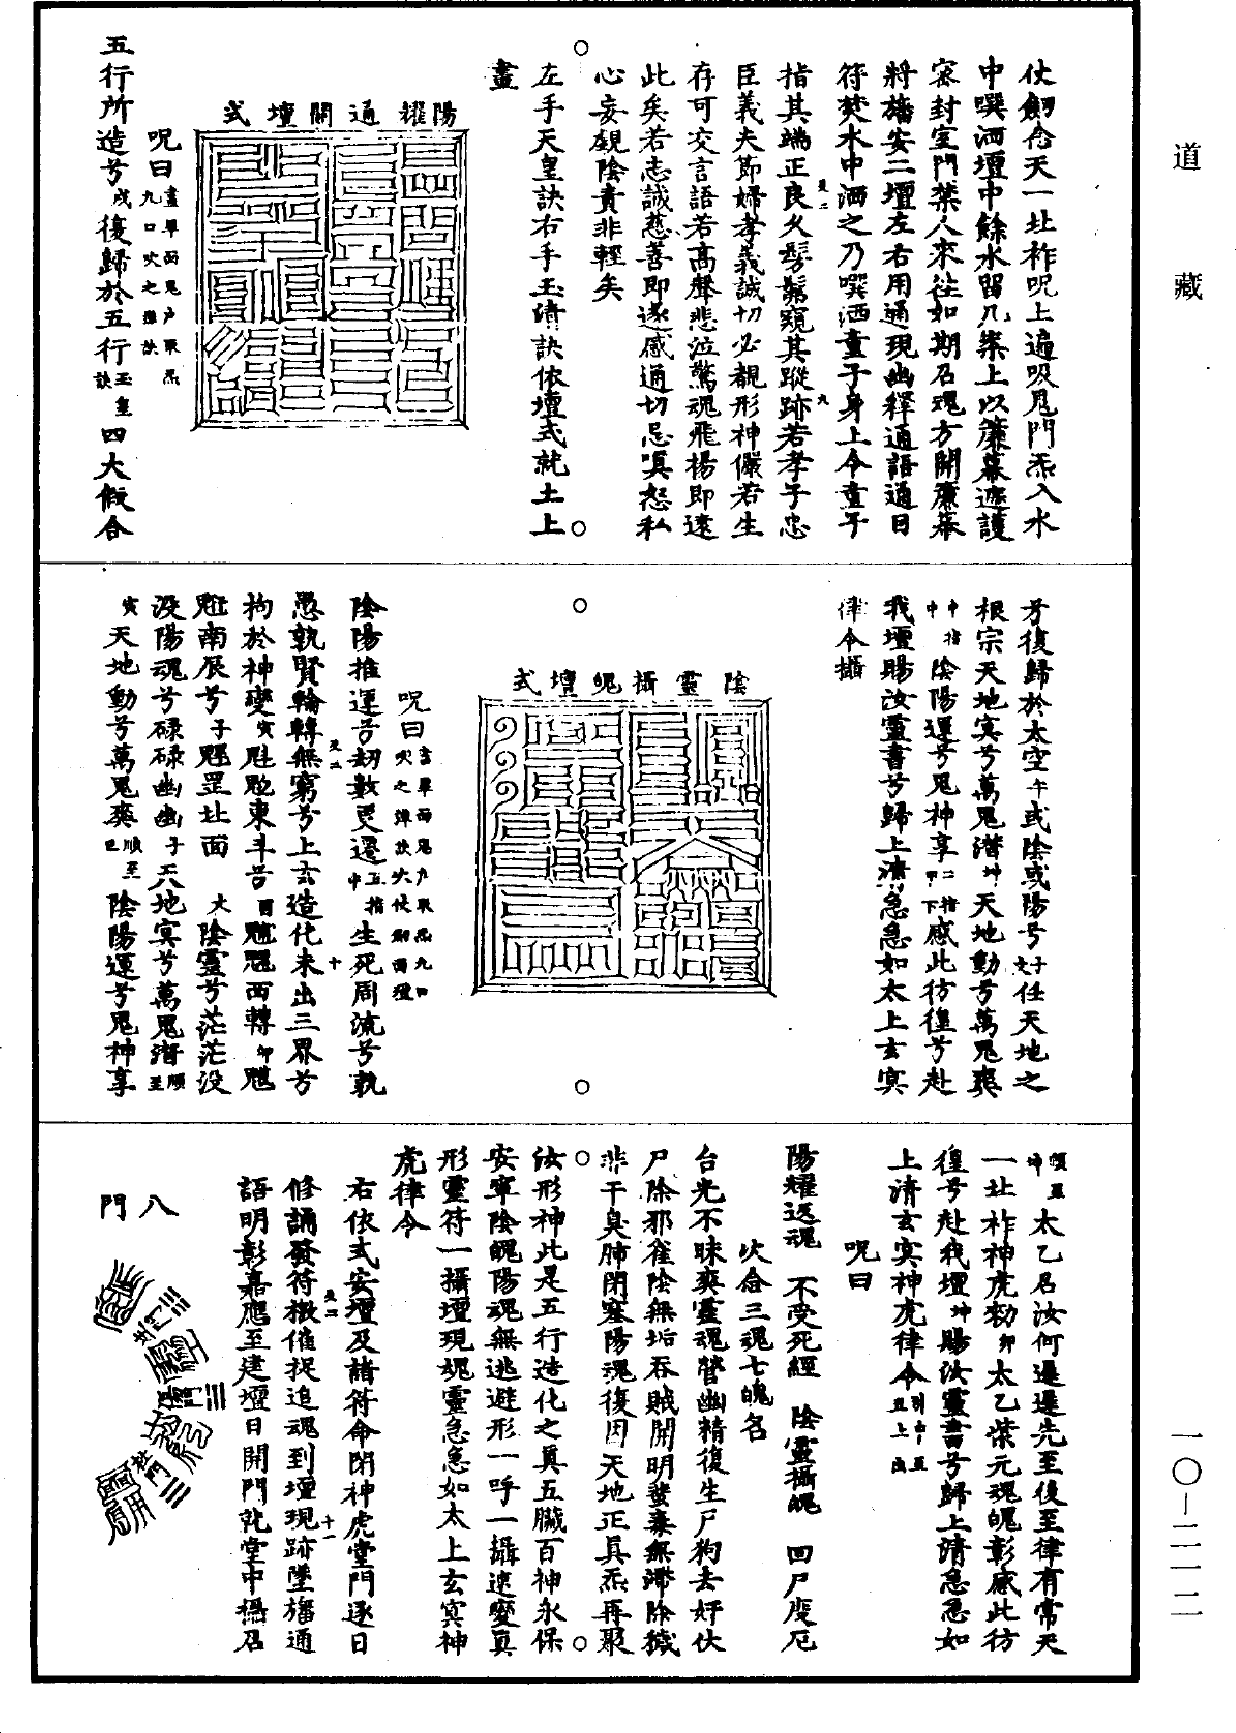 道藏
一〇—二一二
仗劍念天一北祚呪上遍吸鬼門炁入水
中噀洒壇中餘水留几案上以簾幕遮護
密封室門禁人來往如期召魂方開簾幕
將旛安二壇左右用通現幽釋通語通日
符焚水中洒之乃噀洒童子身上令童子
指其端正良久髣髴窺其蹤跡若孝子忠
臣義夫節婦孝義誠切必覩形神儼若生
存可交言語若高聲悲泣驚魂飛揚即遠
此矣若志誠慈善即遂感通切忌嗔怒私
心妄覷陰責非輕矣
左手天皇訣右手玉清訣依壇式就土上
畫
陽耀通開壇式
呪曰畫畢面鬼户取炁九口吹之雜訣
五行所造兮戌復歸於五行玉皇訣四大假合
兮復歸於太空午或陰或陽兮子任天地之
根宗天地㝠兮萬鬼潛坤天地動兮萬鬼爽
中指中陰陽運兮鬼神享二指甲下感此彷徨兮赴
我壇賜汝靈書兮歸上清急急如太上玄㝠
律令攝
陰靈攝魄壇式
呪曰
陰陽推運兮刼數更遷五指中生死周流兮孰
愚孰賢輪轉無窮兮上玄造化未出三界兮
拘於神變寅魁䰢東斗兮酉魓魒西轉卯
南辰兮子魁罡北面大陰靈兮茫茫没
没陽魂兮碌碌幽幽子天地㝠兮萬鬼潛順至
寅天地動兮萬鬼爽順至巳陰陽運兮鬼神享
順至坤太乙召汝何遲遲先至後至律有常天
一北祚神虎勑卯太乙紫元魂魄彰感此彷
徨兮赴我壇坤賜汝靈書兮歸上清急急如
上清玄㝠神虎律令
呪曰
陽耀返魂 不受死經 陰靈攝魄 回尸度厄
次念三魂七魄名
台光不昧爽靈魂營幽精復生尸狗去奸伏
尸除邪雀陰無垢吞賊開明蜚毒無滯除穢
非干臭肺閉塞陽魂復因天地正真炁再聚
汝形神此是五行造化之真五臟百神永保
安寧陰魄陽魂無逃避形一呼一攝速變真
形靈符一攝壇現魂靈急急如太上玄㝠神
虎律令
右依式安壇及諸符命閉神虎堂門逐日
修誦發符檄催捉追魂到壇現跡墜旛通
語明彰嘉應至建壇日開門就堂中攝召
八門